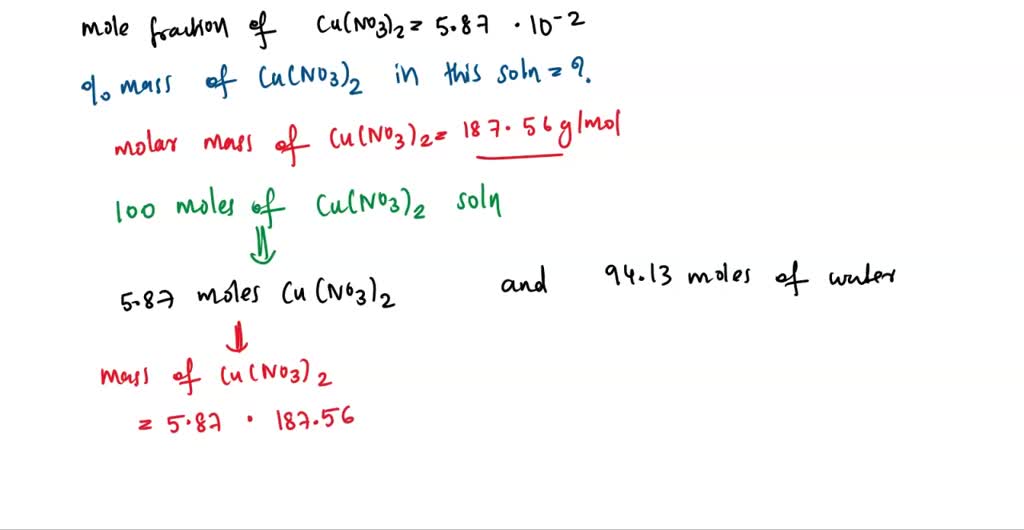 mole fraction of Cu(NO3)2 = 5.87 · 10-2
% mass of Cu(NO3)2 in this soln = ?.
molar mass of Cu(NO3)2 = 187.56 g/mol
100 moles of Cu(NO3)2 soln
⇓
5.87 moles Cu(NO3)2 and 94.13 moles of water
↓
mass of Cu(NO3)2
= 5.87 · 187.56